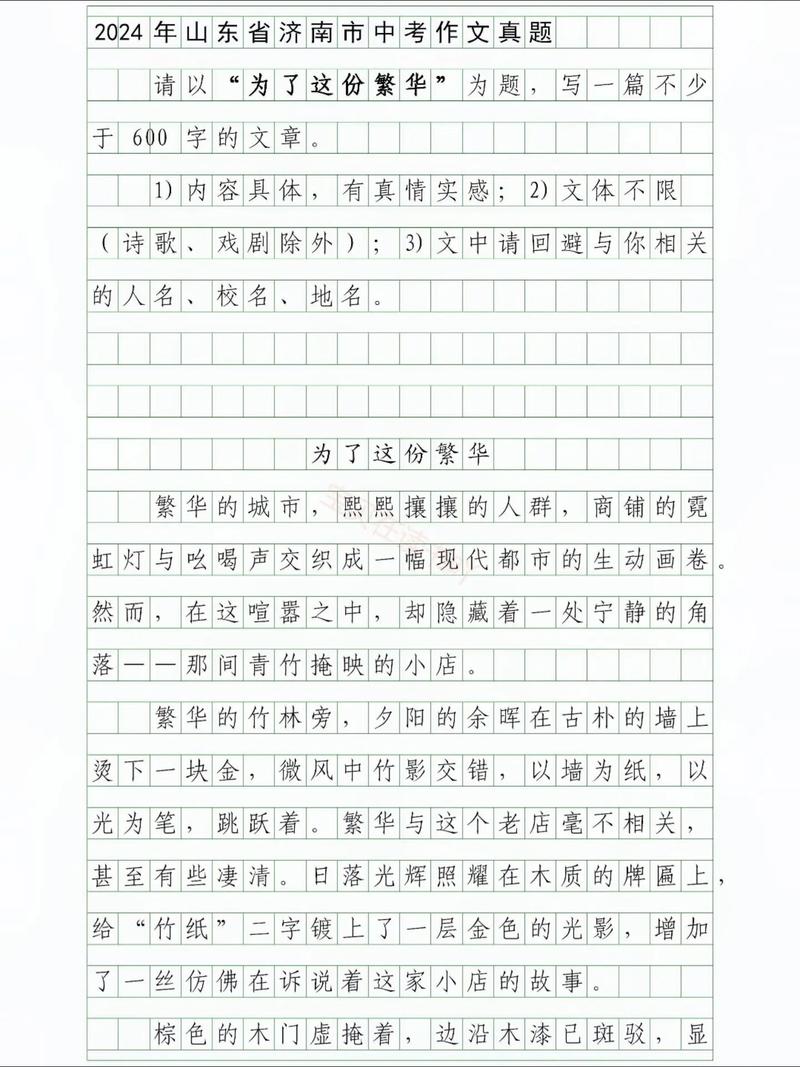 2024年山东省济南市中考作文真题
请以“为了这份繁华”为题，写一篇不少
于600字的文章。
1)内容具体，有真情实感；2)文体不限
（诗歌、戏剧除外）；3)文中请回避与你相关
的人名、校名、地名。
为了这份繁华
繁华的城市，熙熙攘攘的人群，商铺的霓
虹灯与吆喝声交织成一幅现代都市的生动画卷。
然而，在这喧嚣之中，却隐藏着一处宁静的角
落——那间青竹掩映的小店。
繁华的竹林旁，夕阳的余晖在古朴的墙上
烫下一块金，微风中竹影交错，以墙为纸，以
光为笔，跳跃着。繁华与这个老店毫不相关，
甚至有些凄清。日落光辉照耀在木质的牌匾上，
给“竹纸”二字镀上了一层金色的光影，增加
了一丝仿佛在诉说着这家小店的故事。
棕色的木门虚掩着，边沿木漆已斑驳，显